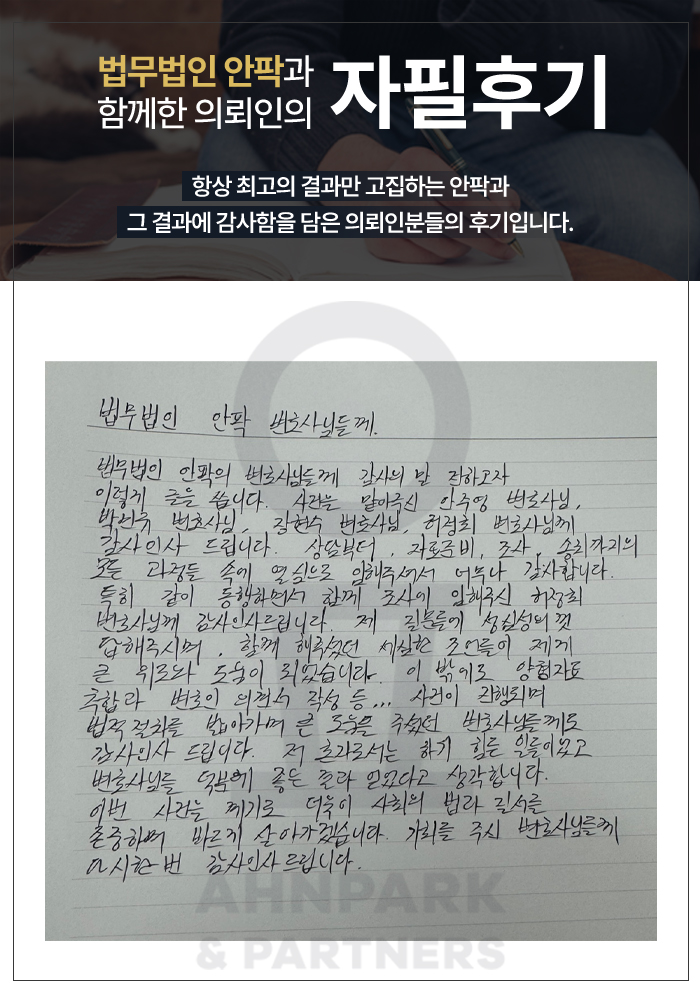 법무법인 안팍과
함께한 의뢰인의
자필후기
항상 최고의 결과만 고집하는 안팍과
그 결과에 감사함을 담은 의뢰인분들의 후기입니다.
법무법인 안팍 변호사님들께.
법무법인 안팍의 변호사님들께 감사의 말 전하고자
이렇게 글을 씁니다. 사건을 맡아주신 안주영 변호사님,
변호사님, 장현수 변호사님, 허정회 변호사님께
감사인사 드립니다. 상담부터, 자료준비, 조사, 송치까지의
모든 과정들 속에 열심으로 임해주셔서 너무나 감사합니다.
특히 같이 동행하면서 함께 조사에 임해주신 허정회
변호사님께 감사인사드립니다. 제 질문들에 성심성의껏
답해주시며, 함께 해주셨던 세심한 조언들이 제게
큰 위로와 도움이 되었습니다. 이 밖에도 양형자료
취합과 변호인 의견서 작성 등... 사건이 진행되며
법적절차를 밟아가며 큰 도움을 주셨던 변호사님들께도
감사인사 드립니다. 저 혼자로서는 하기 힘든 일들이었고
변호사님들 덕분에 좋은 결과 얻었다고 생각합니다.
이번 사건을 계기로 더욱이 사회의 법과 질서를
존중하며 바르게 살아가겠습니다. 기회를 주신 변호사님들께
다시한번 감사인사드립니다.
AHNPARK
& PARTNERS